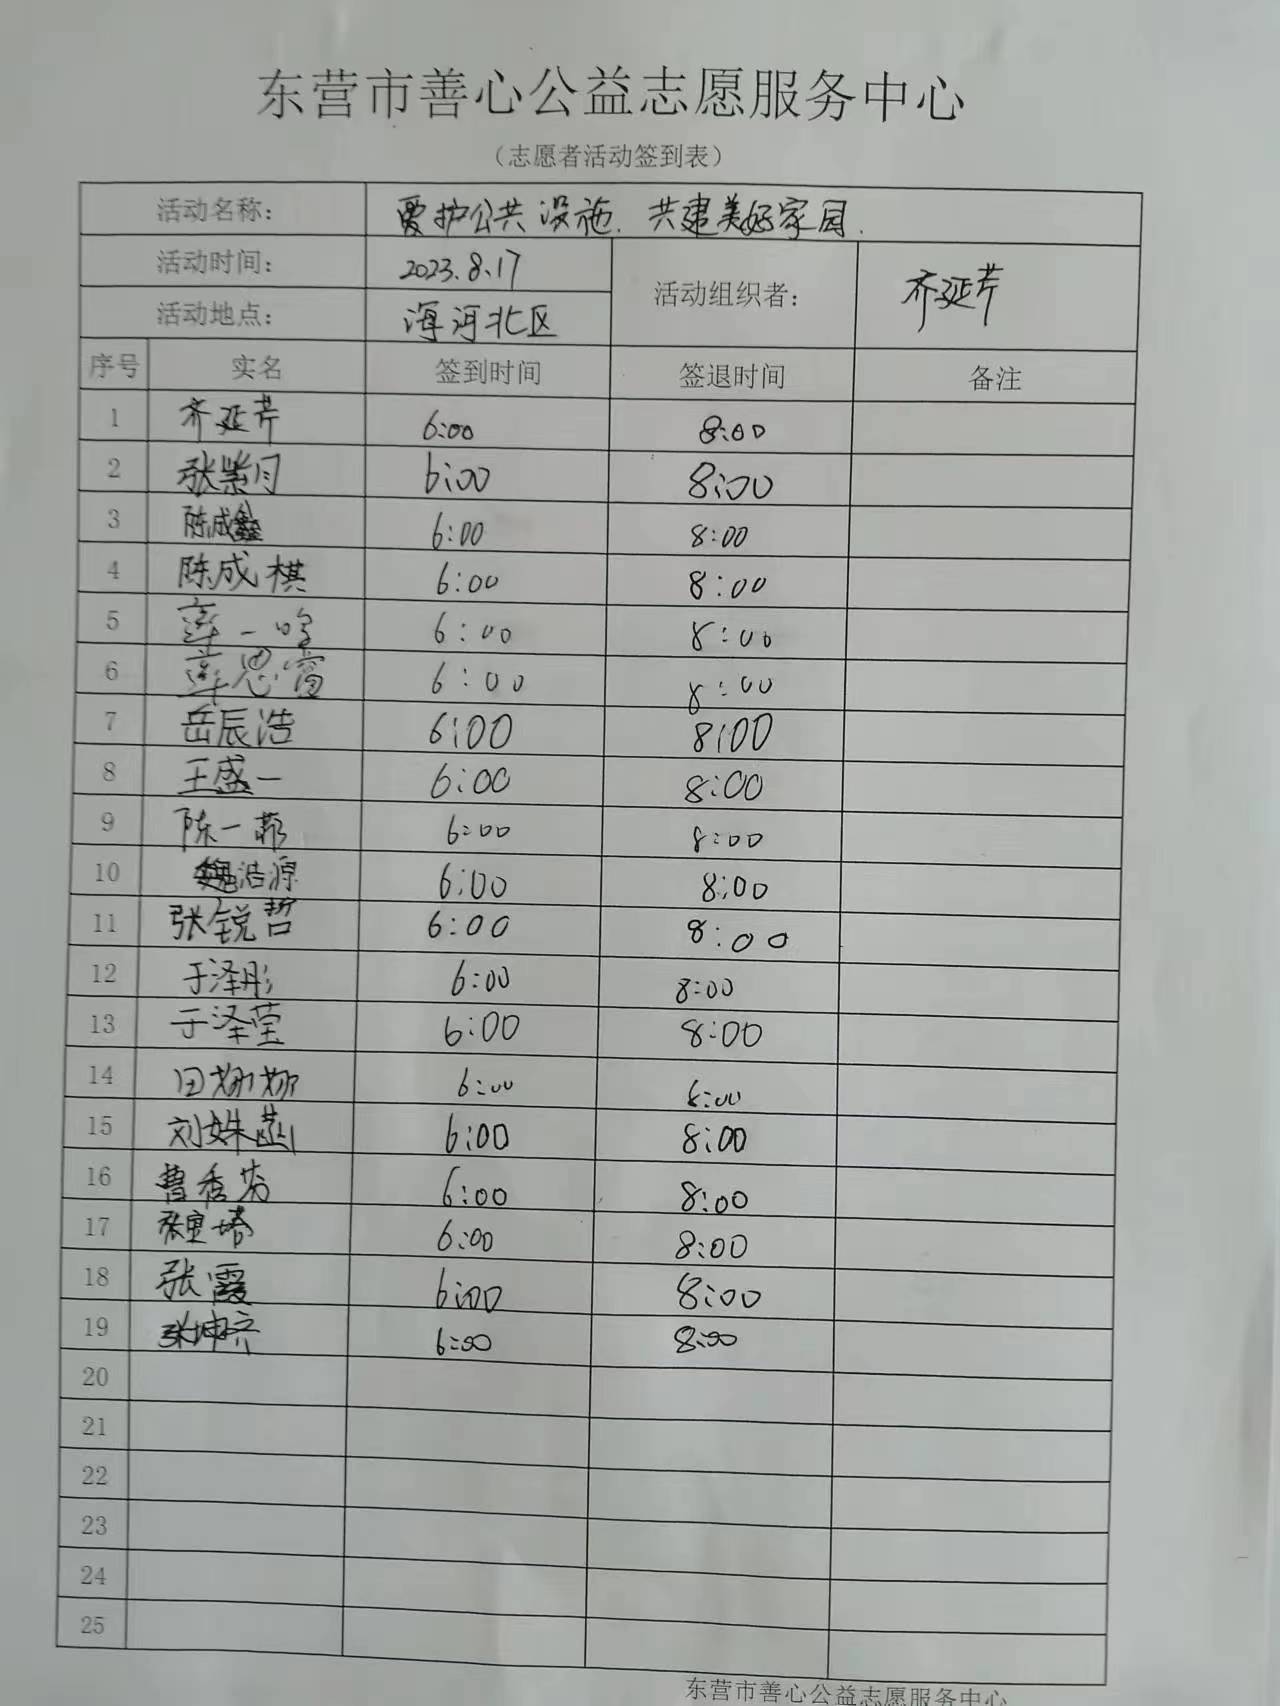 东营市善心公益志愿服务中心
（志愿者活动签到表）
活动名称： 爱护公共设施. 共建美好家园.
活动时间： 2023.8.17 活动组织者： 齐延芹
活动地点： 海河北区
序号 实名 签到时间 签退时间 备注
1 齐延芹 6:00 8:00
2 张紫月 6:00 8:00
3 陈成鑫 6:00 8:00
4 陈成棋 6:00 8:00
5 6:00 8:00
6 6:00 8:00
7 岳辰浩 6:00 8:00
8 王盛一 6:00 8:00
9 陈一菲 6:00 8:00
10 魏浩源 6:00 8:00
11 张锐哲 6:00 8:00
12 于泽彤 6:00 8:00
13 于泽莹 6:00 8:00
14 田娜娜 6:00 8:00
15 刘姝菡 6:00 8:00
16 曹秀芳 6:00 8:00
17 6:00 8:00
18 张霞 6:00 8:00
19 6:00 8:00
20
21
22
23
24
25
东营市善心公益志愿服务中心